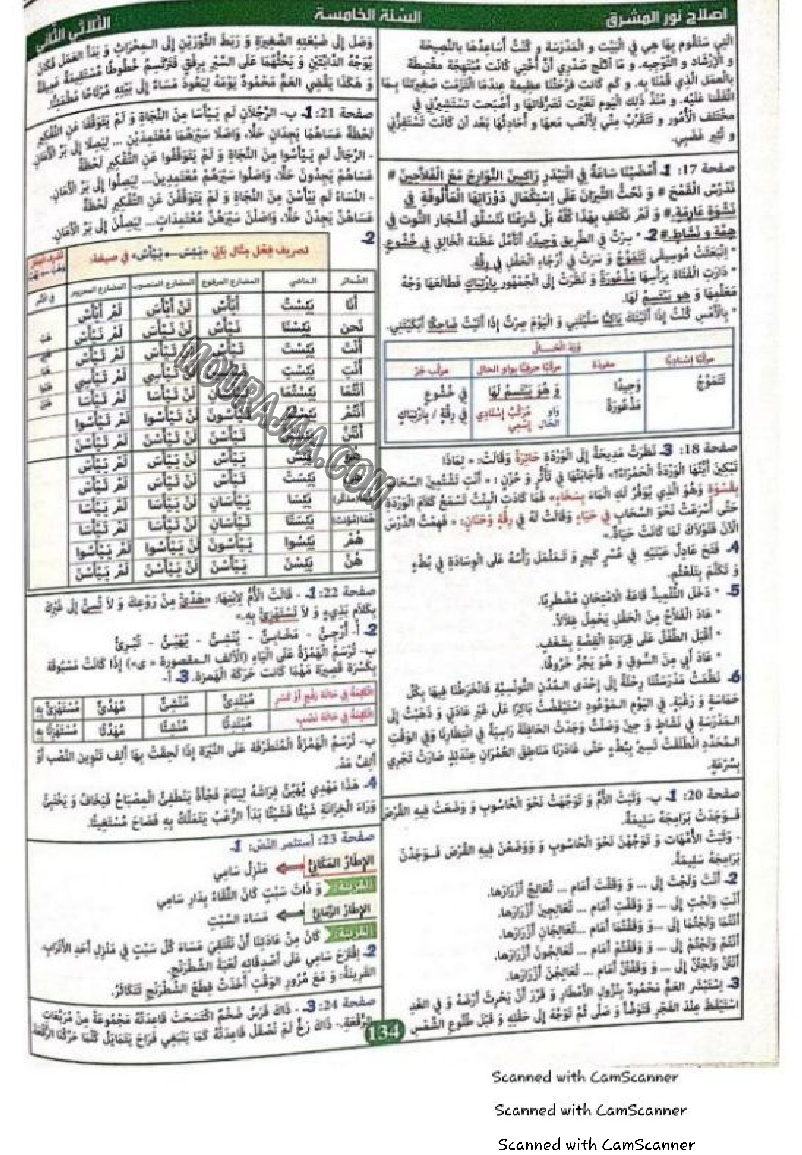 اصلاح نور المشرق
السنة الخامسة
الثلاثي الثاني
التي ستقوم بها هي في البيت و المدرسة و كنت أساعدها بالنصيحة
و الإرشاد و التوجيه. و ما أثلج صدري أنّ أختي كانت مبتهجة مغتبطة
بالعمل الذي قمنا به. و كم كانت فرحتنا عظيمة عندما التزمت صغيرتنا بما
اتّفقنا عليه. و منذ ذلك اليوم تغيّرت تصرّفاتها و أصبحت تستشيرني في
مختلف الأمور و تتقرّب منّي لألعب معها و أحادثها بعد أن كانت تستفزّني
و تثير غضبي.
صفحة 17: 1. أمضينا ساعة في البيدر راكبين النوارج مع الفلاحين #
ندرس القمح # و نحثّ الثيران على إستكمال دوراتها المألوفة في
نشوة عارمة # و لم نكتف بهذا كلّه بل شرعنا نتسلّق أشجار التوت في
خفّة و نشاط # 2. * سرت في الطريق وحيدا أتأمّل عظمة الخالق في خشوع.
* انبعثت موسيقى تتموّج و سرت في أرجاء الحفل في رقّة.
* دارت الفتاة برأسها مذعورة و نظرت إلى الجمهور بارتباك فطالعها وجه
معلّمها و هو يبتسم لها.
* بالأمس كنت إذا أتيتك باكيا سلّيتني و اليوم صرت إذا أتيتك ضاحكا أبكيتني.
ورد الحال
مركّبا إسناديّا
مفردة
مركّبا حرفيّا بواو الحال
مركّب جرّ
تتموّج
وحيدا
مذعورة
و هو يبتسم لها
واو الحال
مركّب إسنادي إسمي
في خشوع
في رقّة / بارتباك
صفحة 18: 3. نظرت مديحة إلى الوردة حائرة وقالت: « لماذا
تبكين أيّتها الوردة الحمراء؟». فأجابتها في تأثّر و حزن : « أنت تشتمين السحاب
بقسوة وهو الذي يوفّر لك الماء بسخاء» فما كادت البنت تسمع كلام الوردة
حتّى أسرعت نحو السحاب في حياء وقالت له في رقّة وحنان: « فهمت الدرس
الآن فلولاك لما كانت حياة.»
4. فتح عادل عينيه في عسر كبير و تململ رأسه على الوسادة في بطء
و تكلّم بتلعثم.
5. * دخل التلميذ قاعة الامتحان مضطربا.
* عاد الفلاح من الحقل يحمل غلالا.
* أقبل الطفل على قراءة القصّة بشغف.
* عاد أبي من السوق و هو يجرّ خروفا.
6. نظّمت مدرستنا رحلة إلى إحدى المدن التونسية فانخرطنا فيها بكلّ
حماسة و رغبة. في اليوم الموعود استيقظت باكرا على غير عادتي و ذهبت إلى
المدرسة في نشاط و حين وصلت وجدت الحافلة راسية في انتظارنا وفي الوقت
المحدّد انطلقت تسير ببطء حتّى غادرنا مناطق العمران عندئذ صارت تجري
بسرعة.
صفحة 20: 1. ب- وثبت الأمّ و توجّهت نحو الحاسوب و وضعت فيه القرص
فوجدت برامجه سليمة.
- وثبت الأمّهات و توجّهن نحو الحاسوب و ووضعن فيه القرص فوجدن
برامجه سليمة.
2. أنت ولجت إلى ... و وقفت أمام ... تعالج أزرارها.
أنت ولجت إلى ... و وقفت أمام ... تعالجين أزرارها.
أنتما ولجتما إلى ... و وقفتما أمام ... تعالجان أزرارها.
أنتم ولجتم إلى ... و وقفتم أمام ... تعالجون أزرارها.
أنتنّ ولجتنّ إلى ... و وقفتنّ أمام ... تعالجن أزرارها.
3. استبشر العمّ محمود بنزول الأمطار و قرّر أن يحرث أرضه و في الغد
استيقظ عند الفجر فتوضّأ و صلّى ثمّ توجّه إلى حقله و قبل طلوع الشمس
وصل إلى ضيعته الصغيرة و ربط الثورين إلى المحراث و بدأ العمل فكان
يوجّه الدابّتين و يحثّهما على السير برفق فترتسم خطوطا مستقيمة عميقة
و هكذا يقضي العمّ محمود يومه ليعود مساء إلى بيته مرتاحا مطمئنا.
صفحة 21: 1- ب- الرجلان لم ييأسا من النجاة و لم يتوقّفا عن التفكير
لحظة عساهما يجدان حلّا، واصلا سيرهما معتمدين ... ليصلا إلى برّ الأمان.
- الرجال لم ييأسوا من النجاة و لم يتوقّفوا عن التفكير لحظة
عساهم يجدون حلّا، واصلوا سيرهم معتمدين... ليصلوا إلى برّ الأمان.
- النساء لم ييأسن من النجاة و لم يتوقّفن عن التفكير لحظة
عساهنّ يجدن حلّا، واصلن سيرهنّ معتمدات... ليصلن إلى برّ الأمان.
2.
تصريف فعل مثال يائي «يئس ← ييأس» في صيغة:
الضمائر
الماضي
المضارع المرفوع
المضارع المنصوب
المضارع المجزوم
أنا يئست أيأس لن أيأس لم أيأس
نحن يئسنا نيأس لن نيأس لم نيأس
أنت يئست تيأس لن تيأس لم تيأس
أنت يئست
أنتما يئستما
أنتم
أنتنّ
هو
هي
هما (مذكر) يئسا ييأسان لن ييأسا لم ييأسا
هما (مؤنث) يئستا تيأسان لن تيأسا لم تيأسا
هم يئسوا ييأسون لن ييأسوا لم ييأسوا
هنّ يئسن ييأسن لن ييأسن لم ييأسن
MOURAJAA.COM
صفحة 22: 1. - قالت الأمّ لابنها: «هدّئ من روعك و لا تسئ إلى غيرك
بكلام بذيء و لا تستهزئ به.»
2. أ.
ب- ترسم الهمزة على الياء (الألف المقصورة « ى») إذا كانت مسبوقة
بكسرة قصيرة مهما كانت حركة الهمزة. 3. أ.
الكلمة في حالة رفع أو جرّ
مبتدئ
منشئ
مهدّئ
مستهزئ به
الكلمة في حالة نصب
مبتدئا
منشئا
مهدّئا
مستهزئا به
ب- ترسم الهمزة المتطرفة على النبرة إذا لحقت بها ألف تنوين النصب أو
ألف مدّ.
4. هذا مهدي يهيّئ فراشه لينام فجأة ينطفئ المصباح فيخاف و يختبئ
وراء الخزانة شيئا فشيئا بدأ الرعب يتملّك به فصاح مستغيثا.
صفحة 23: أستثمر النصّ: 1.
الإطار المكاني
منزل سامي
القرينة:
و ذات سبت كان اللقاء بدار سامي
الإطار الزماني
مساء السبت
القرينة:
كان من عادتنا أن نلتقي مساء كلّ سبت في منزل أحد الأتراب.
2. إقترح سامي على أصدقائه لعبة الشطرنج.
القرينة: و مع مرور الوقت أخذت قطع الشطرنج تتكاثر.
صفحة 24: 3. - ذاك فرس ضخم اكتسحت قاعدته مجموعة من مربّعات
الرقعة.- ذاك رخّ لم تصقل قاعدته كما ينبغي فراح يتمايل كلّما حرّكنا الرقعة.
134
Scanned with CamScanner
Scanned with CamScanner
Scanned with CamScanner